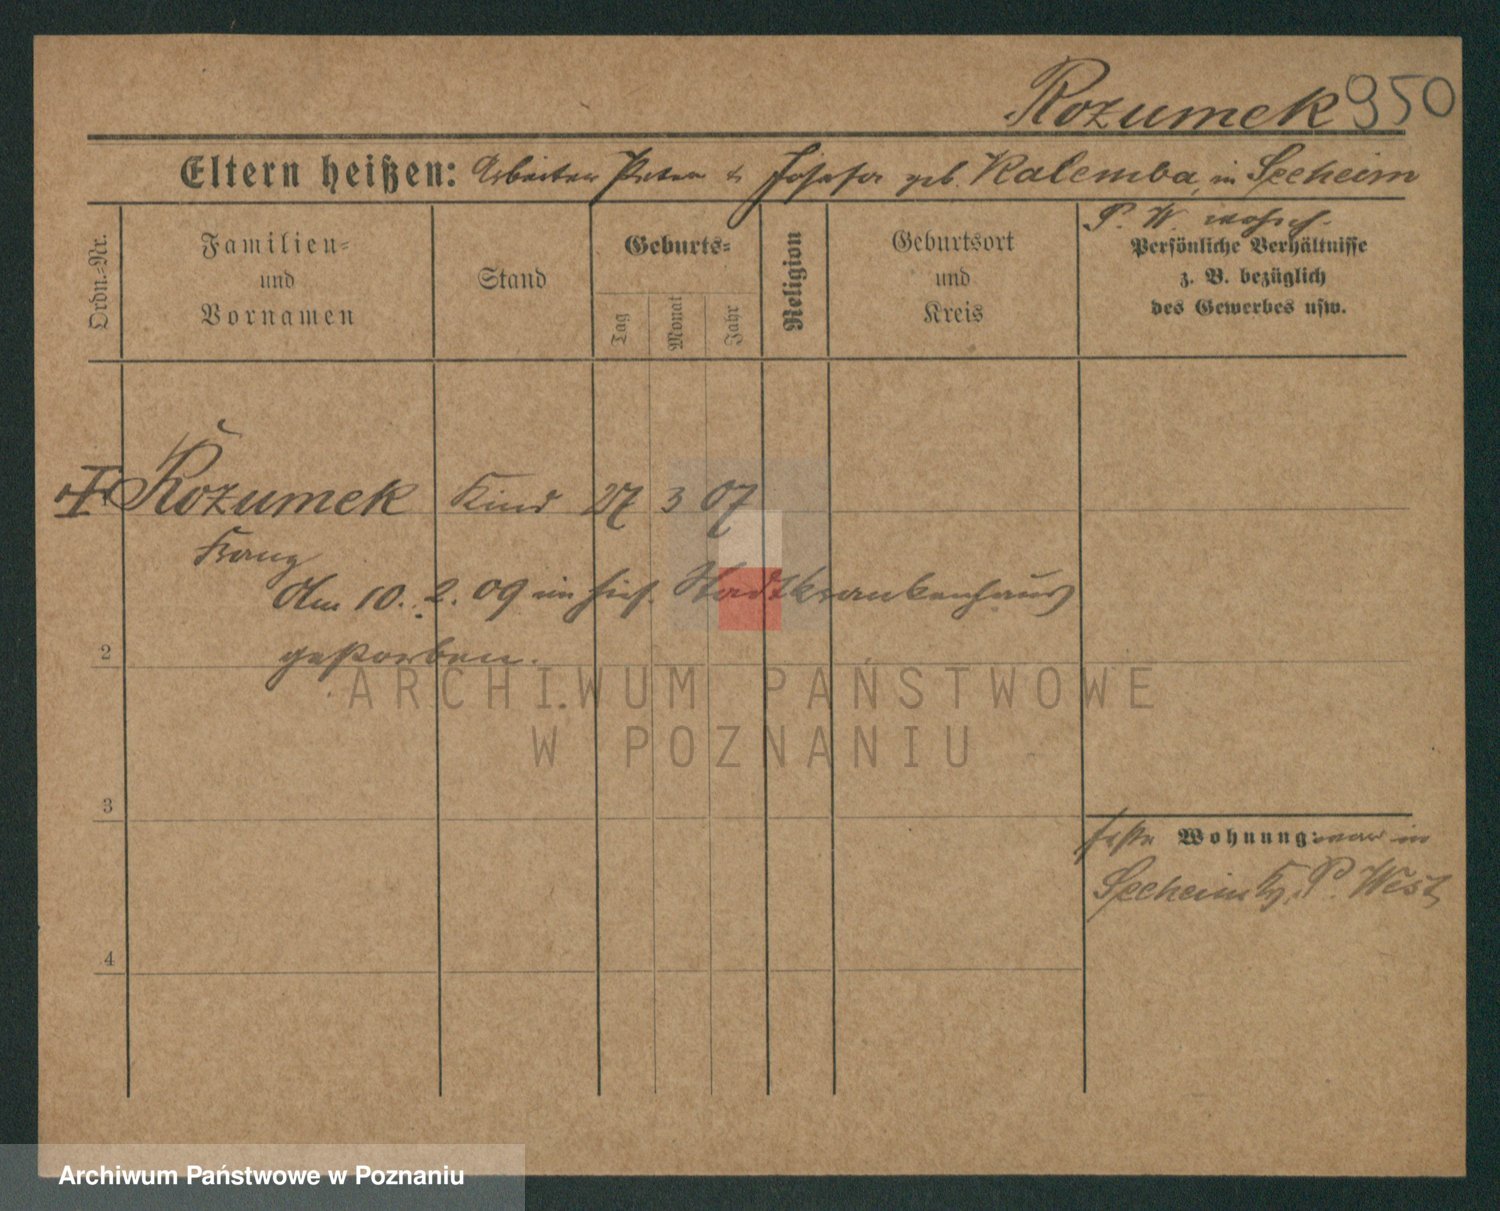 Rozumek 950
Eltern heißen: Arbeiter Peter & Josefa geb. Kalemba, in Seeheim
P. W. wohnh.
Ordn.-Nr.
Familien-
und
Vornamen
Stand
Geburts-
Tag
Monat
Jahr
Religion
Geburtsort
und
Kreis
Persönliche Verhältnisse
z. B. bezüglich
des Gewerbes usw.
1 Rozumek Kind 27 3 07
Franz
Am 10. 2. 09 im hies. Stadtkrankenhaus
2 gestorben.
ARCHIWUM PAŃSTWOWE
W POZNANIU
3
feste Wohnung: war in
Seeheim Kr. P. West
4
Archiwum Państwowe w Poznaniu